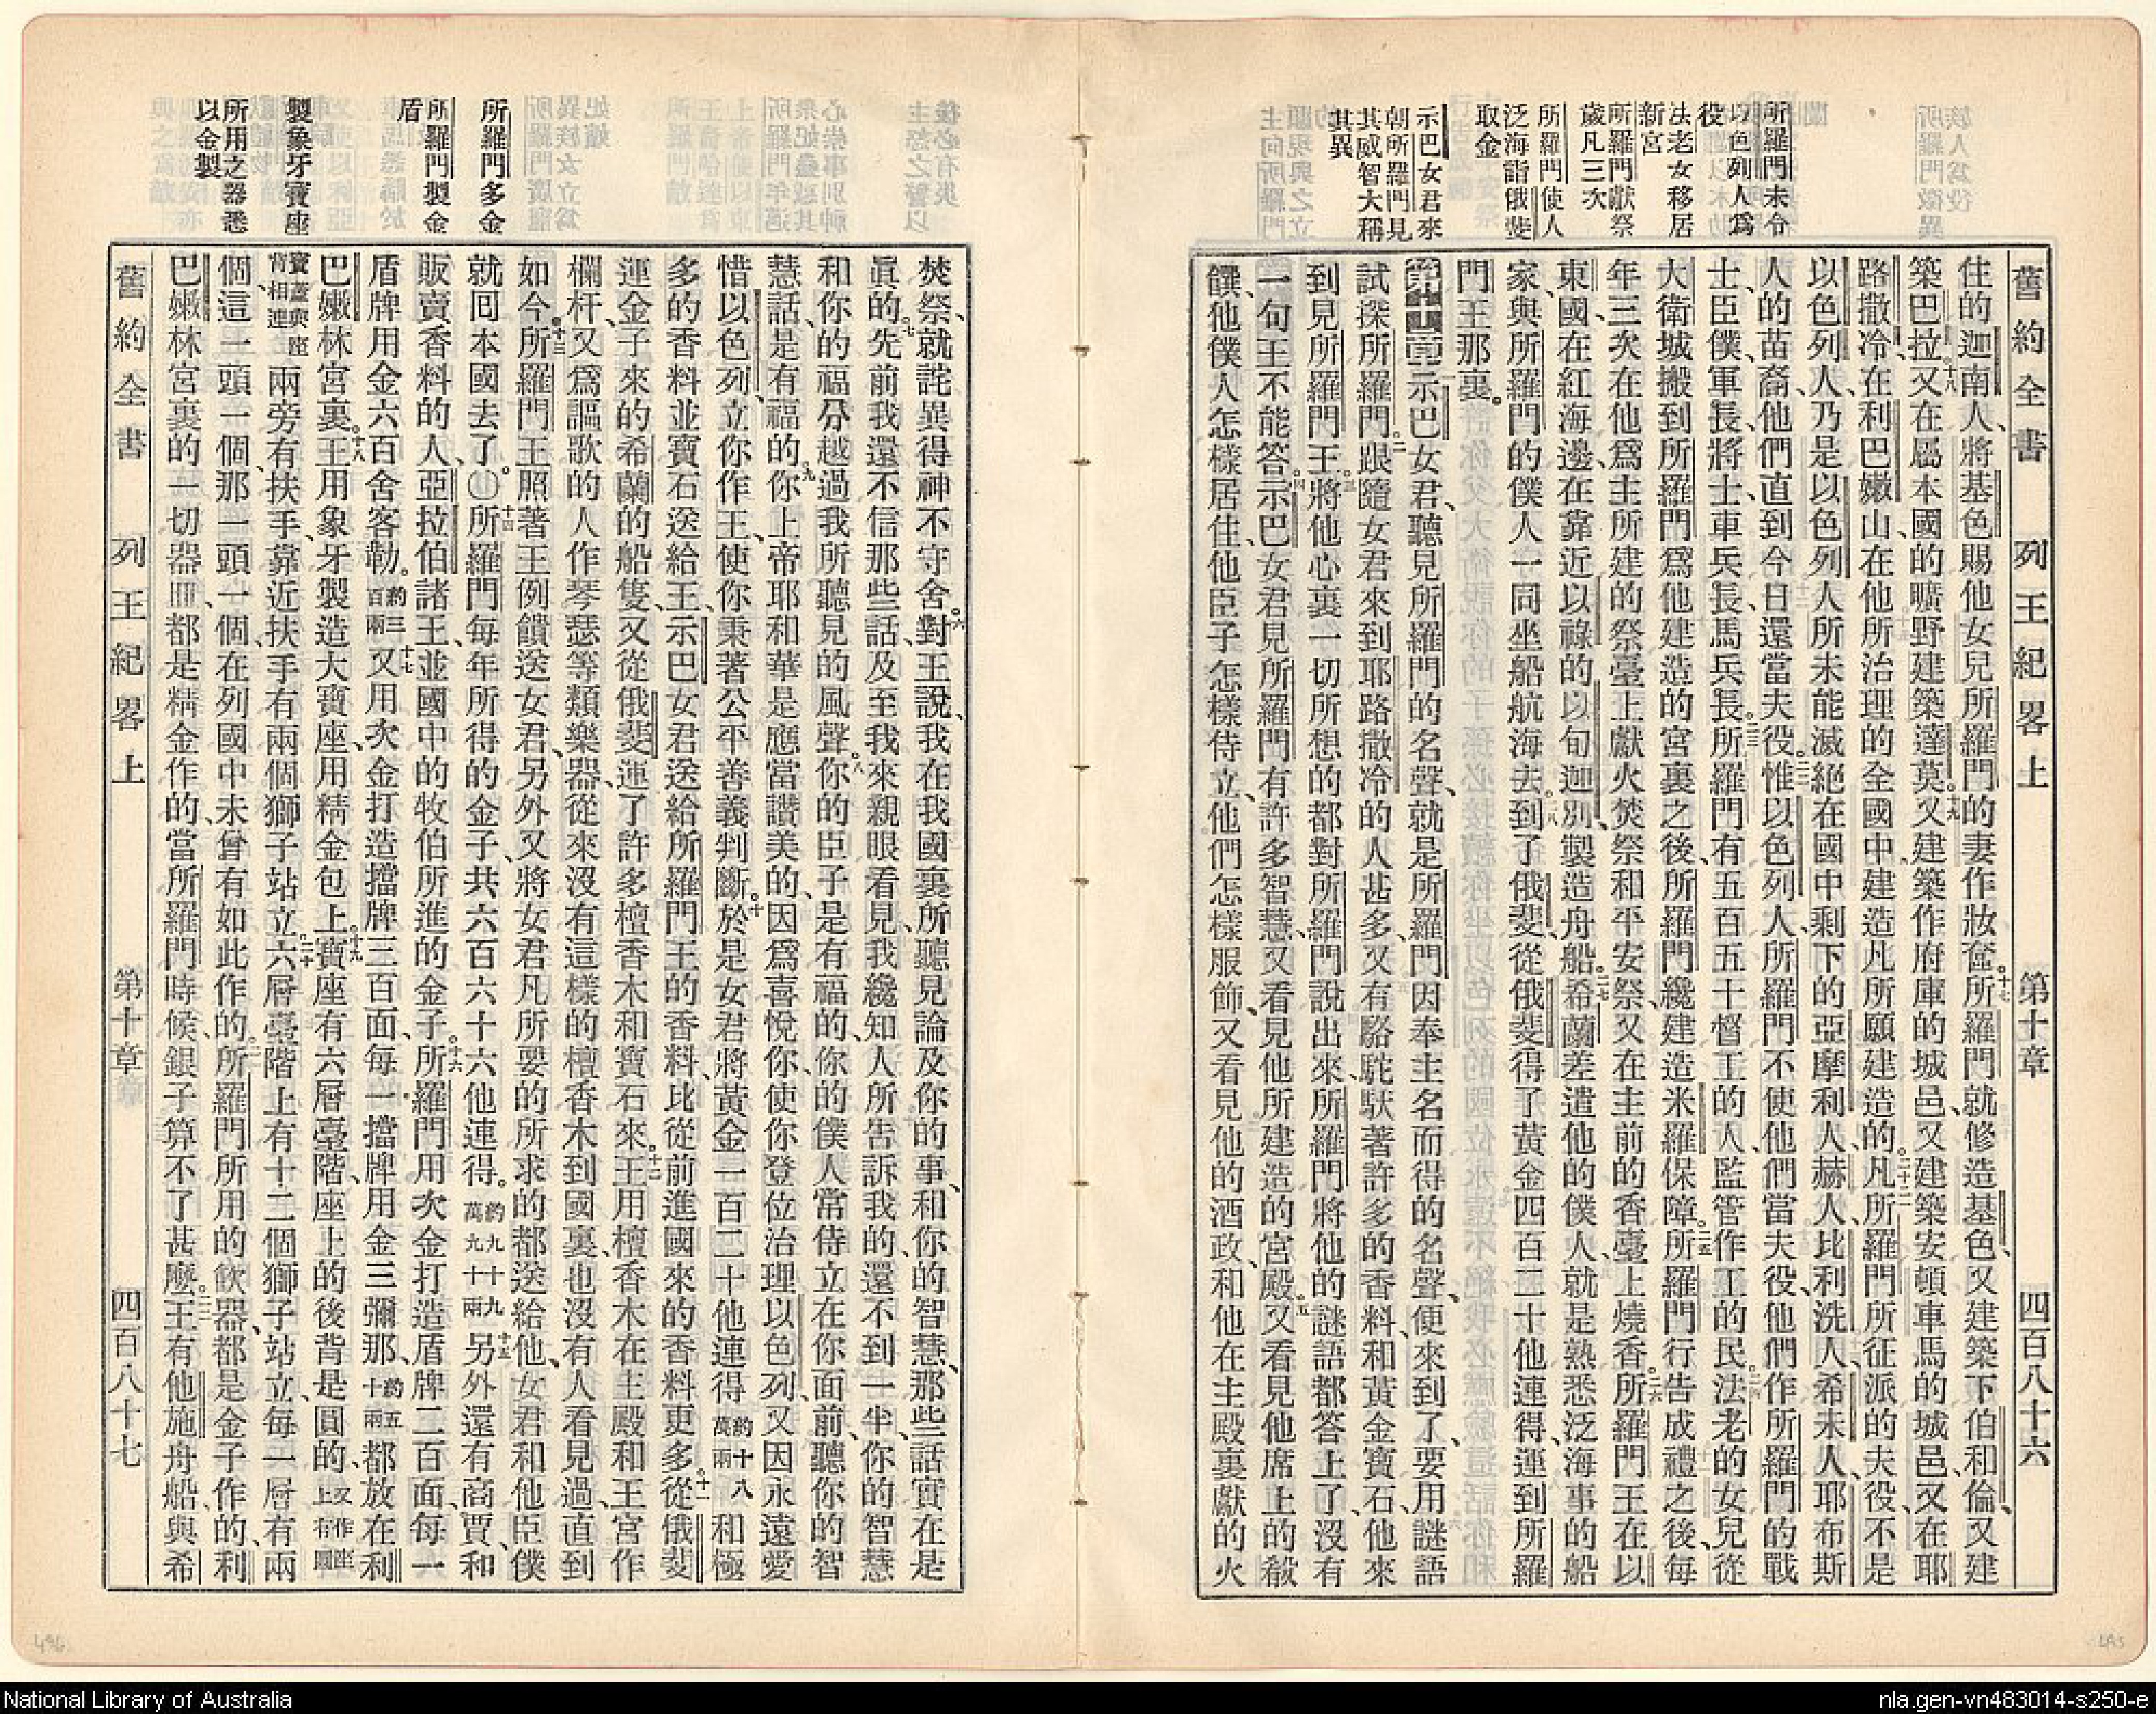 舊約全書 列王紀畧上 第十章 四百八十六
所羅門未令
以色列人爲
役
法老女移居
新宮
所羅門獻祭
歲凡三次
所羅門使人
泛海詣俄斐
取金
示巴女君來
朝所羅門見
其威智大稱
其異
住的迦南人、將基色賜他女兒所羅門的妻作妝奩。十七所羅門就修造基色、又建築下伯和倫、又建
築巴拉、十八又在屬本國的曠野建築達莫。十九又建築作府庫的城邑、又建築安頓車馬的城邑、又在耶
路撒冷、在利巴嫩山、在他所治理的全國中、建造凡所願建造的。二十凡所羅門所征派的夫役、不是
以色列人、乃是以色列人所未能滅絕在國中剩下的亞摩利人、赫人、比利洗人、希未人、耶布斯
人的苗裔、他們直到今日還當夫役。二二惟以色列人、所羅門不使他們當夫役、他們作所羅門的戰
士、臣僕、軍長、將士、車兵長、馬兵長。二三所羅門有五百五十督工的人、監管作工的民。二四法老的女兒從
大衛城搬到所羅門爲他建造的宮裏之後、所羅門纔建造米羅保障。二五所羅門行告成禮之後、每
年三次在他爲主所建的祭臺上獻火焚祭和平安祭、又在主前的香臺上燒香。二六所羅門王在以
東國、在紅海邊、在靠近以祿的以旬迦別、製造舟船。二七希蘭差遣他的僕人、就是熟悉泛海事的船
家、與所羅門的僕人一同坐船航海去。二八到了俄斐、從俄斐得了黃金四百二十他連得、運到所羅
門王那裏。
第十章 一示巴女君、聽見所羅門的名聲、就是所羅門因奉主名而得的名聲、便來到了、要用謎語
試探所羅門。二跟隨女君來到耶路撒冷的人甚多、又有駱駝馱著許多的香料、和黃金寶石、他來
到見所羅門王。三將他心裏一切所想的都對所羅門說出來、所羅門將他的謎語都答上了、沒有
一句王不能答。四示巴女君見所羅門有許多智慧、又看見他所建造的宮殿。五又看見他席上的殽
饌、他僕人怎樣居住、他臣子怎樣侍立、他們怎樣服飾、又看見他的酒政、和他在主殿裏獻的火
所羅門多金
所羅門製金
盾
製象牙寶座
所用之器悉
以金製
焚祭、就詫異得神不守舍。六對王說、我在我國裏所聽見論及你的事、和你的智慧、那些話實在是
眞的。七先前我還不信那些話、及至我來親眼看見、我纔知人所告訴我的、還不到一半、你的智慧
和你的福分、越過我所聽見的風聲。八你的臣子是有福的、你的僕人常侍立在你面前、聽你的智
慧話、是有福的。九你上帝耶和華是應當讚美的、因爲喜悅你、使你登位治理以色列、又因永遠愛
惜以色列、立你作王、使你秉著公平善義判斷。十於是女君將黃金一百二十他連得約十八萬兩和極
多的香料並寶石送給王、示巴女君送給所羅門王的香料、比從前進國來的香料更多。十一從俄斐
運金子來的希蘭的船隻、又從俄斐運了許多檀香木和寶石來。十二王用檀香木在主殿和王宮作
欄杆、又爲謳歌的人作琴瑟等類樂器、從來沒有這樣的檀香木到國裏、也沒有人看見過、直到
如今。十三所羅門王照著王例饋送女君、另外又將女君凡所要的所求的都送給他、女君和他臣僕
就囘本國去了。〇十四所羅門每年所得的金子、共六百六十六他連得。約九十九萬九十兩十五另外還有商賈、和
販賣香料的人、亞拉伯諸王、並國中的牧伯所進的金子。十六所羅門用次金打造盾牌二百面、每一
盾牌用金六百舍客勒。約三百兩十七又用次金打造擋牌三百面、每一擋牌用金三彌那、約五十兩都放在利
巴嫩林宮裏。十八王用象牙製造大寶座、用精金包上。十九寶座有六層臺階、座上的後背是圓的、又作座上有圓
寶蓋與座背相連兩旁有扶手、靠近扶手有兩個獅子站立。二十六層臺階上有十二個獅子站立、每一層有兩
個、這一頭一個、那一頭一個、在列國中未曾有如此作的。二一所羅門所用的飲器、都是金子作的、利
巴嫩林宮裏的一切器皿、都是精金作的、當所羅門時候、銀子算不了甚麼。二二王有他施舟船、與希
舊約全書 列王紀畧上 第十章 四百八十七
National Library of Australia
nla.gen-vn483014-s250-e